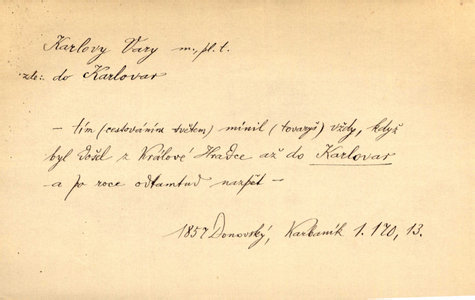 Karlovy Vary m. pl. t.
zde: do Karlovar
– tím (cestováním světem) mínil (tovaryš) vždy, když
byl došel z Králové Hradce až do Karlovar
a po roce odtamtud nazpět –
1857 Donovský, Karbaník 1. 170, 13.